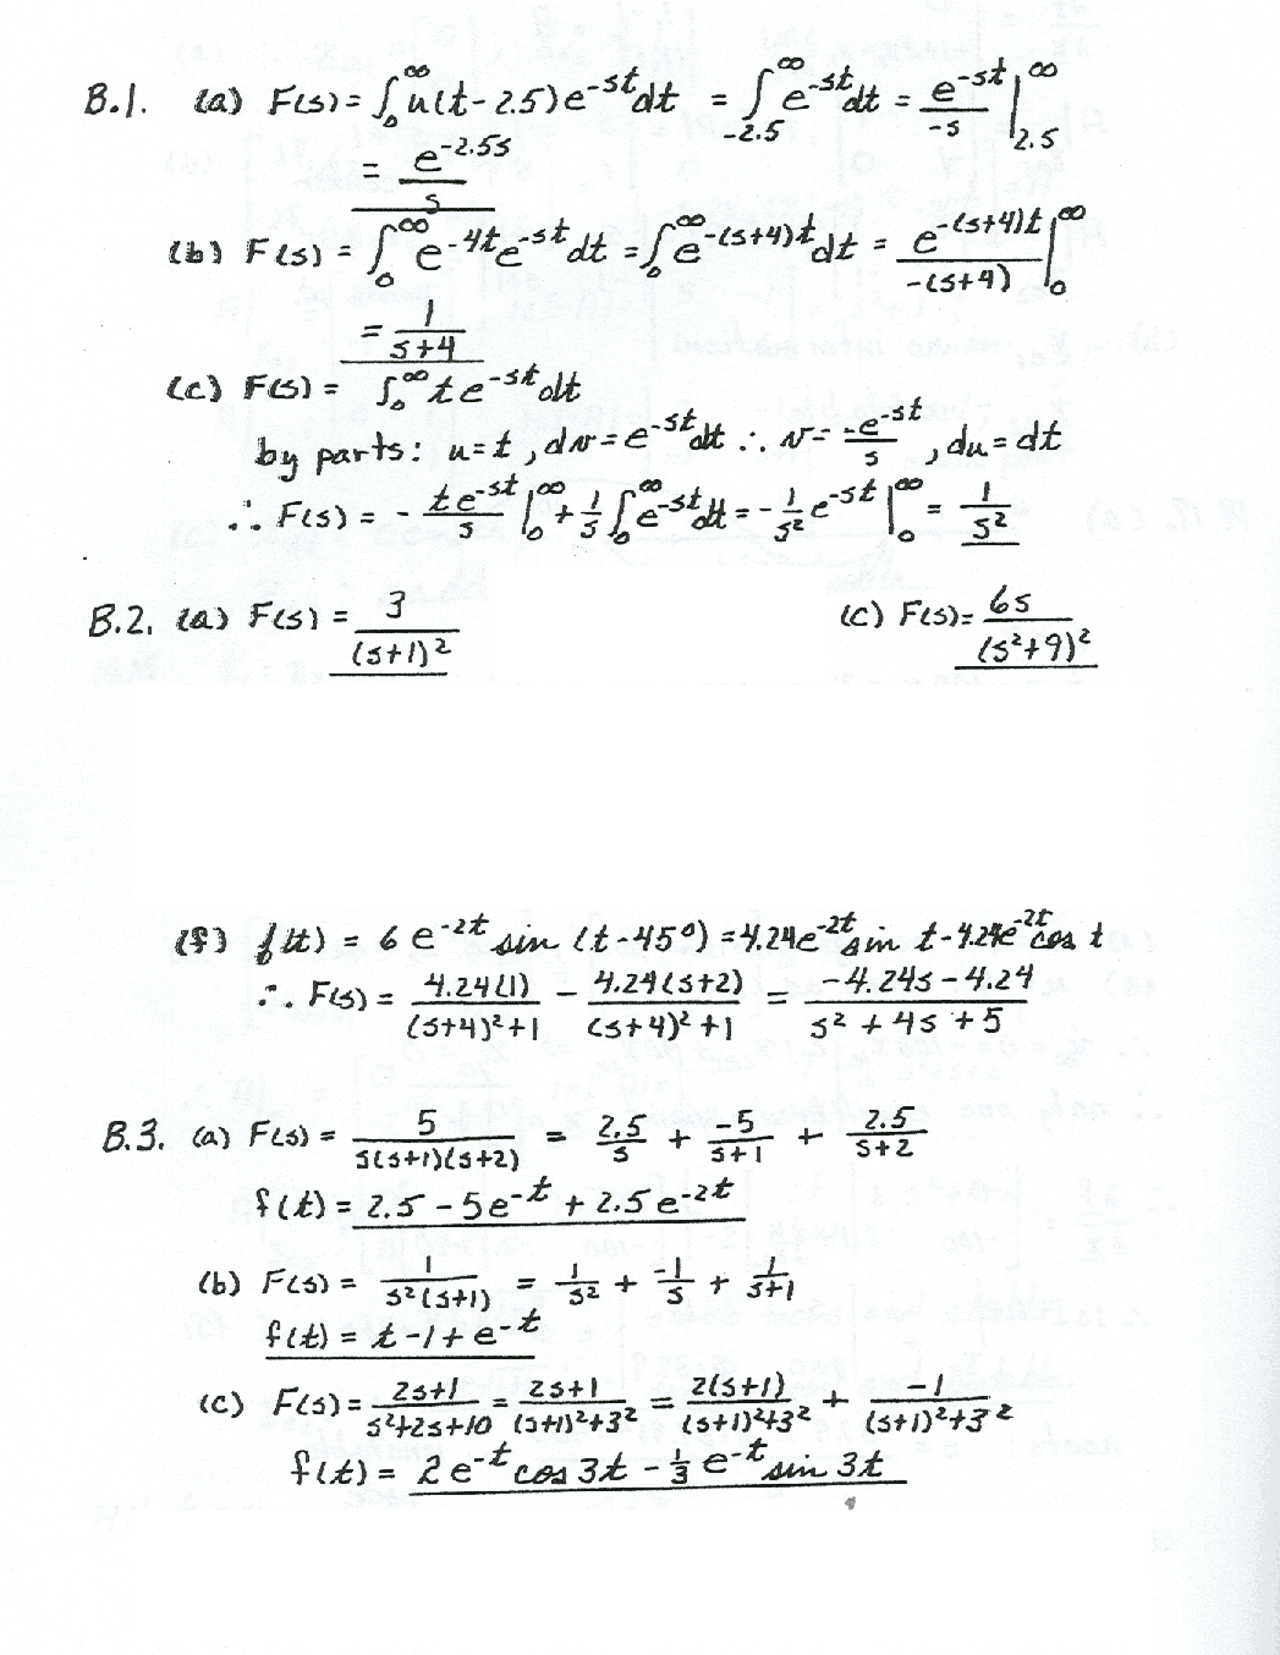 B.1. (a) F(s) = ∫₀^∞ u(t-2.5)e^{-st}dt = ∫_{-2.5}^∞ e^{-st}dt = e^{-st}/-s |_{2.5}^∞
= e^{-2.5s}/s
(b) F(s) = ∫₀^∞ e^{-4t}e^{-st}dt = ∫₀^∞ e^{-(s+4)t}dt = e^{-(s+4)t}/-(s+4) |₀^∞
= 1/(s+4)
(c) F(s) = ∫₀^∞ te^{-st}dt
by parts: u=t, dv=e^{-st}dt ∴ v= -e^{-st}/s, du=dt
∴ F(s) = - te^{-st}/s |₀^∞ + 1/s ∫₀^∞ e^{-st}dt = - 1/s² e^{-st} |₀^∞ = 1/s²
B.2. (a) F(s) = 3/(s+1)² (c) F(s)= 6s/(s²+9)²
(f) f(t) = 6e^{-2t} sin (t-45°) = 4.24e^{-2t} sin t - 4.24e^{-2t} cos t
∴ F(s) = 4.24(1)/((s+4)²+1) - 4.24(s+2)/((s+4)²+1) = (-4.24s-4.24)/(s²+4s+5)
B.3. (a) F(s) = 5/(s(s+1)(s+2)) = 2.5/s + -5/(s+1) + 2.5/(s+2)
f(t) = 2.5 - 5e^{-t} + 2.5e^{-2t}
(b) F(s) = 1/(s²(s+1)) = 1/s² + -1/s + 1/(s+1)
f(t) = t-1+e^{-t}
(c) F(s) = (2s+1)/(s²+2s+10) = (2s+1)/((s+1)²+3²) = 2(s+1)/((s+1)²+3²) + -1/((s+1)²+3²)
f(t) = 2e^{-t} cos 3t - 1/3 e^{-t} sin 3t